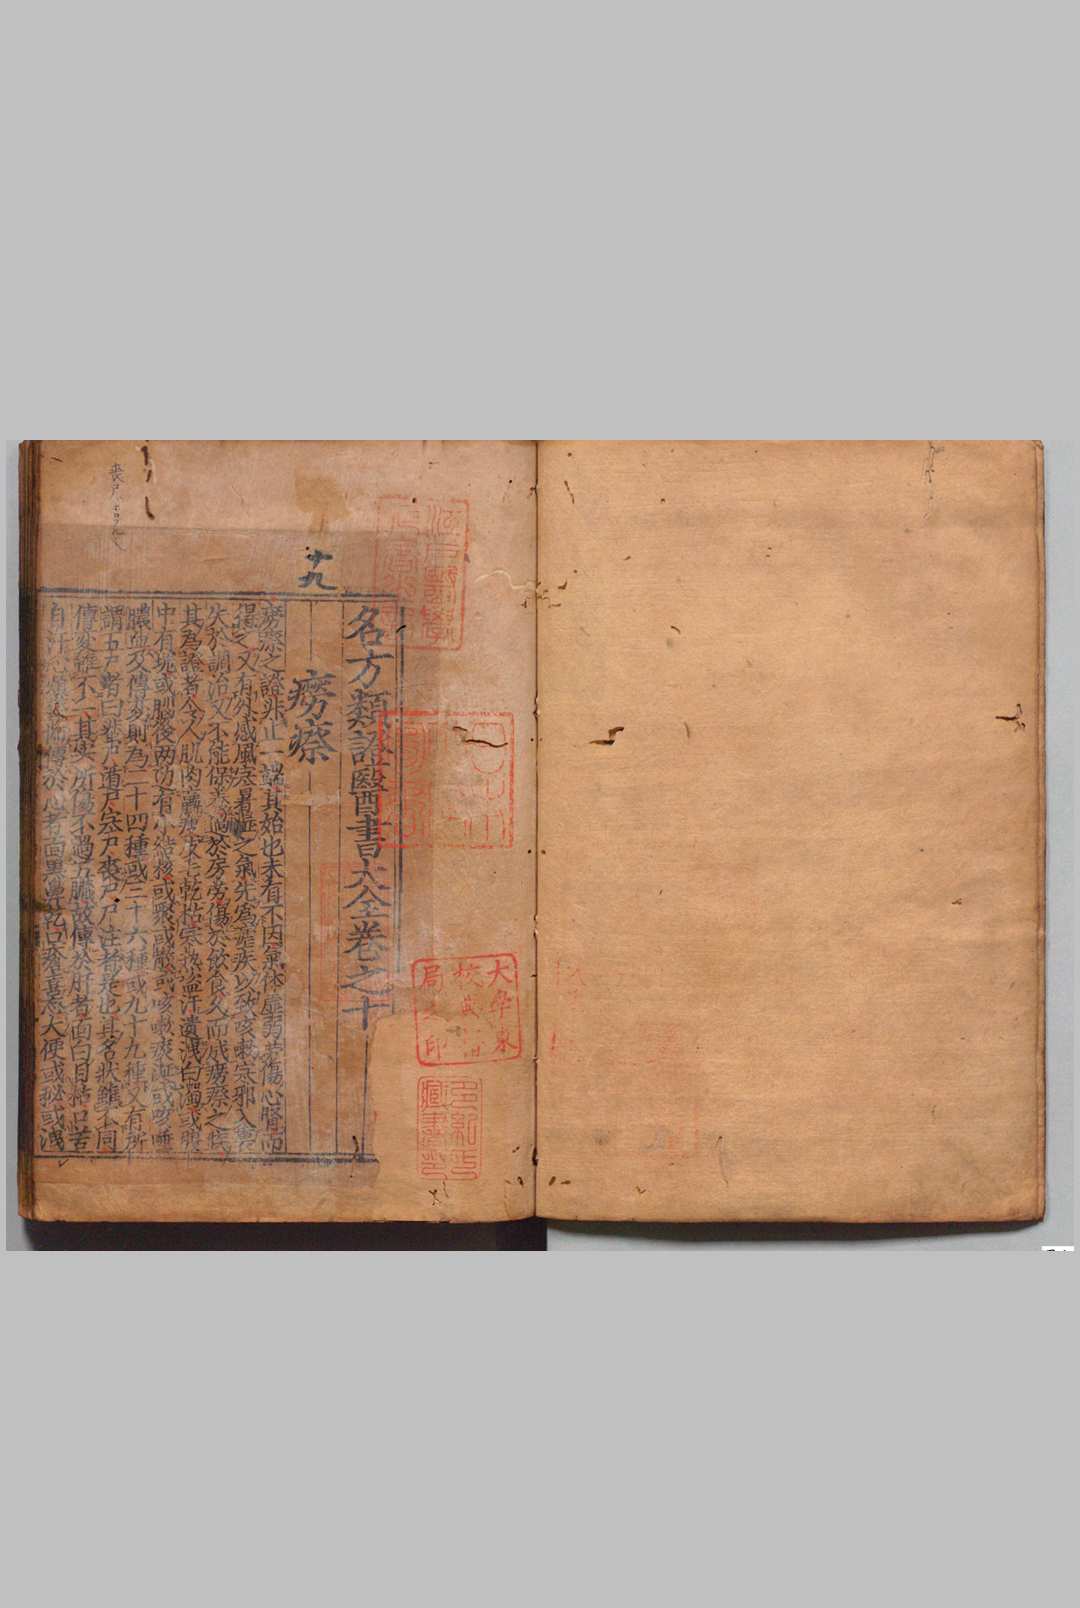 十九
名方類證醫書大全卷之十
癆瘵
癆瘵之證非止一端其始也未有不因氣体虛弱勞傷心腎而
得之又有外感風寒暑濕之氣先為瘧疾以致咳嗽寒邪入
失於調治又不能保養過於房勞傷於飲食久而成癆瘵之疾
其為證者令人肌肉羸瘦皮毛乾枯寒熱盗汗遺洩白濁或腹
中有塊或腦後两边有小結核或聚或散或咳嗽痰涎或咳唾
膿血及傳変則為二十四種或三十六種或九十九種又有所
謂五尸者曰蜚尸遁尸寒尸喪尸尸注者是也其名状雖不同
傳変雖不一其实所傷不過五臟故傳於肝者面白目枯口苦
自汗心煩驚怖傳於心者面黑鼻乾口瘡喜忘大便或秘或洩
大学東
校典
局之印
藏書